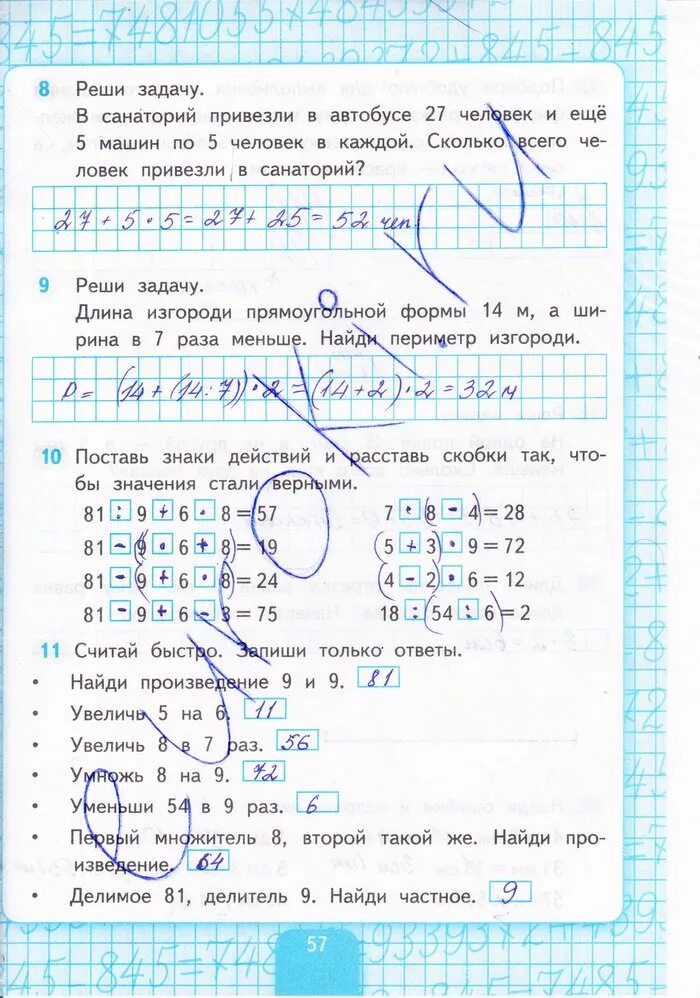 8 Реши задачу.
В санаторий привезли в автобусе 27 человек и ещё
5 машин по 5 человек в каждой. Сколько всего че-
ловек привезли в санаторий?
27 + 5 · 5 = 27 + 25 = 52 чел.
9 Реши задачу.
Длина изгороди прямоугольной формы 14 м, а ши-
рина в 7 раза меньше. Найди периметр изгороди.
P = (14 + (14 : 7)) · 2 = (14 + 2) · 2 = 32 м
10 Поставь знаки действий и расставь скобки так, что-
бы значения стали верными.
81 : 9 + 6 · 8 = 57
7 · (8 - 4) = 28
81 - (9 · 6 + 8) = 19
(5 + 3) · 9 = 72
81 - (9 + 6 · 8) = 24
(4 - 2) · 6 = 12
81 - 9 + 6 - 3 = 75
18 : (54 : 6) = 2
11 Считай быстро. Запиши только ответы.
• Найди произведение 9 и 9. 81
• Увеличь 5 на 6. 11
• Увеличь 8 в 7 раз. 56
• Умножь 8 на 9. 72
• Уменьши 54 в 9 раз. 6
• Первый множитель 8, второй такой же. Найди про-
изведение. 64
• Делимое 81, делитель 9. Найди частное. 9
57